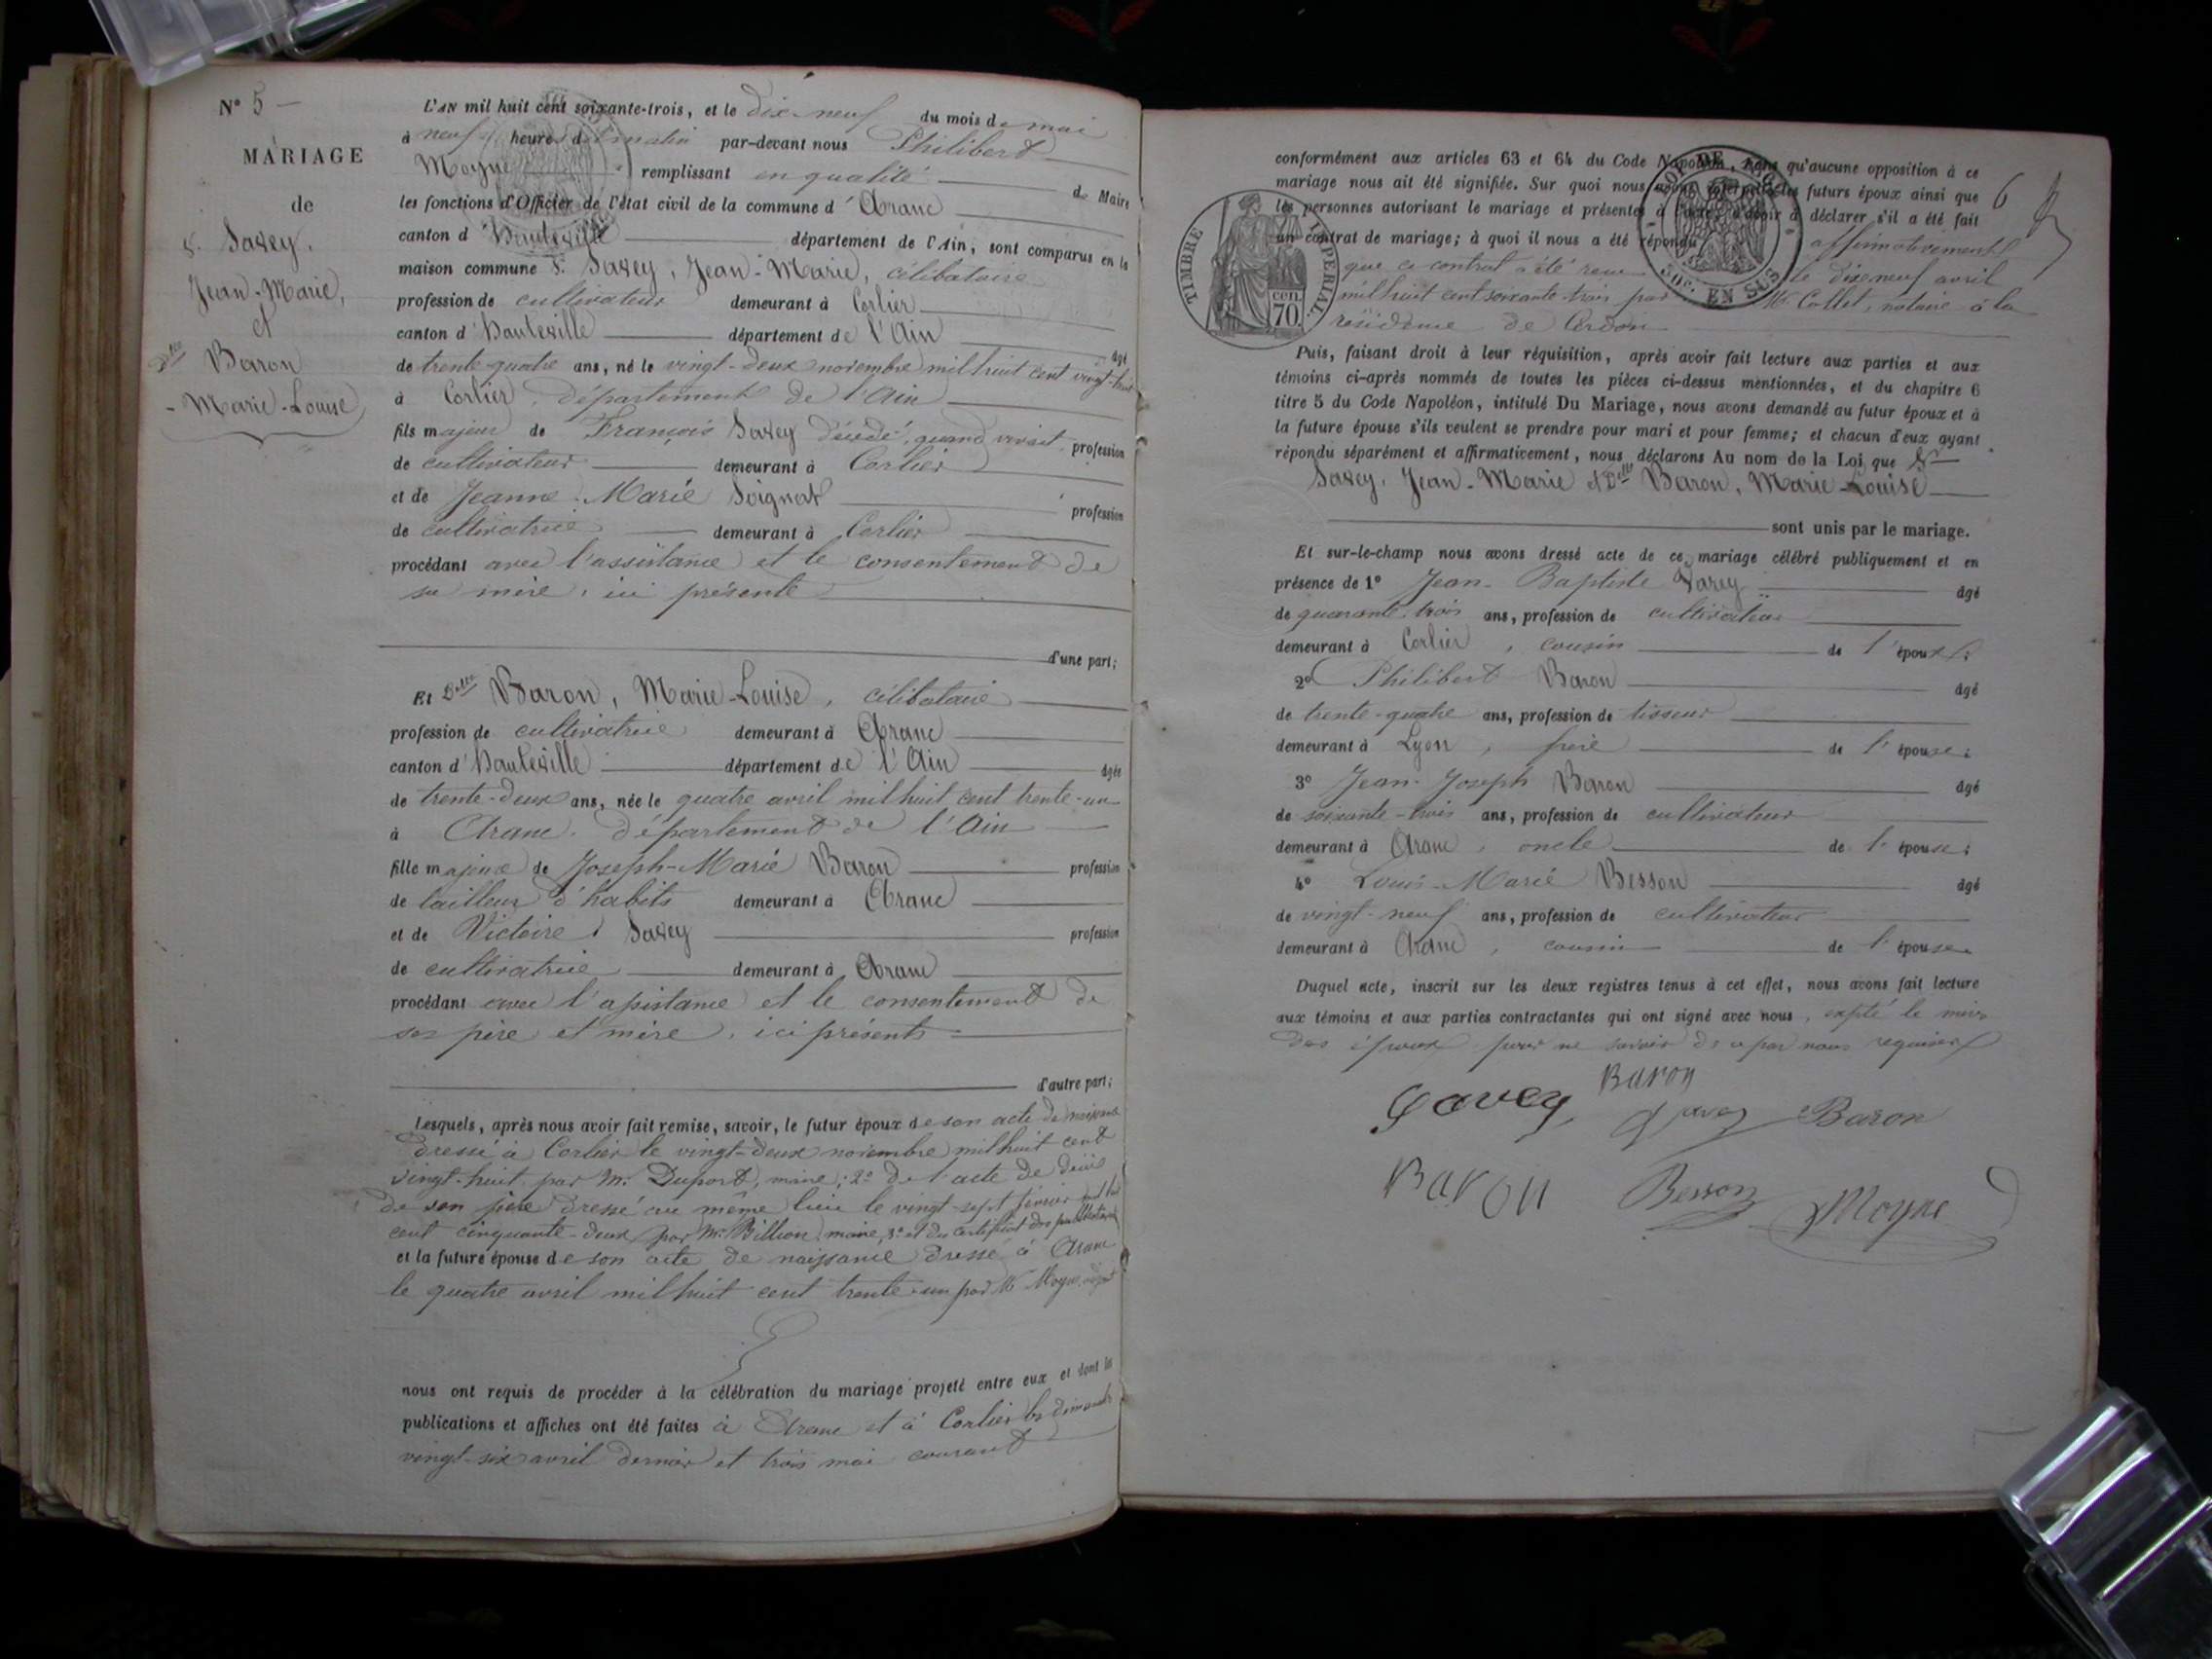 N° 5 —
MARIAGE
de
S. Savey,
Jean-Marie,
et
Delle Baron
- Marie-Louise,
L'AN mil huit cent soixante-trois, et le dix-neuf du mois de mai
à neuf heures du matin par-devant nous Philibert
Moyne remplissant en qualité de Maire
les fonctions d'Officier de l'état civil de la commune d'Aranc
canton d'Hauteville département de l'Ain, sont comparus en la
maison commune S. Savey, Jean-Marie, célibataire
profession de cultivateur demeurant à Corlier
canton d'Hauteville département de l'Ain âgé
de trente-quatre ans, né le vingt-deux novembre mil huit cent vingt-huit
à Corlier, département de l'Ain
fils majeur de François Savey décédé, quand vivait profession
de cultivateur demeurant à Corlier
et de Jeanne-Marie Soignat profession
de cultivatrice demeurant à Corlier
procédant avec l'assistance et le consentement de
sa mère, ici présente
d'une part;
Et Delle Baron, Marie-Louise, célibataire
profession de cultivatrice demeurant à Aranc
canton d'Hauteville département de l'Ain âgée
de trente-deux ans, née le quatre avril mil huit cent trente-un
à Aranc, département de l'Ain
fille majeure de Joseph-Marie Baron profession
de tailleur d'habits demeurant à Aranc
et de Victoire Savey profession
de cultivatrice demeurant à Aranc
procédant avec l'assistance et le consentement de
ses père et mère, ici présents
d'autre part;
Lesquels, après nous avoir fait remise, savoir, le futur époux de son acte de naissance
dressé à Corlier le vingt-deux novembre mil huit cent
vingt-huit par Mr Duport, maire; 2° de l'acte de décès
de son père dressé au même lieu le vingt-sept février mil huit
cent cinquante-deux par Mr Billion, maire, 3° et du certificat des publications
et la future épouse de son acte de naissance dressé à Aranc
le quatre avril mil huit cent trente-un par Mr Moyne, adjoint
nous ont requis de procéder à la célébration du mariage projeté entre eux et dont les
publications et affiches ont été faites à Aranc et à Corlier les dimanches
vingt-six avril dernier et trois mai courant
6
conformément aux articles 63 et 64 du Code Napoléon, sans qu'aucune opposition à ce
mariage nous ait été signifiée. Sur quoi nous avons interpellé les futurs époux ainsi que
les personnes autorisant le mariage et présentes à l'acte, d'avoir à déclarer s'il a été fait
un contrat de mariage; à quoi il nous a été répondu affirmativement
que ce contrat a été reçu le dix neuf avril
mil huit cent soixante-trois par Mr Collet, notaire à la
résidence de Cerdon
TIMBRE IMPÉRIAL
cen. 70.
2/10e EN SUS
Puis, faisant droit à leur réquisition, après avoir fait lecture aux parties et aux
témoins ci-après nommés de toutes les pièces ci-dessus mentionnées, et du chapitre 6
titre 5 du Code Napoléon, intitulé Du Mariage, nous avons demandé au futur époux et à
la future épouse s'ils veulent se prendre pour mari et pour femme; et chacun d'eux ayant
répondu séparément et affirmativement, nous déclarons Au nom de la Loi que Sr
Savey, Jean-Marie et Delle Baron, Marie-Louise
sont unis par le mariage.
Et sur-le-champ nous avons dressé acte de ce mariage célébré publiquement et en
présence de 1° Jean-Baptiste Savey âgé
de quarante-trois ans, profession de cultivateur
demeurant à Corlier, cousin de l'époux;
2° Philibert Baron âgé
de trente-quatre ans, profession de tisseur
demeurant à Lyon, frère de l'épouse;
3° Jean-Joseph Baron âgé
de soixante-trois ans, profession de cultivateur
demeurant à Aranc, oncle de l'épouse;
4° Louis-Marie Besson âgé
de vingt-neuf ans, profession de cultivateur
demeurant à Aranc, cousin de l'épouse
Duquel acte, inscrit sur les deux registres tenus à cet effet, nous avons fait lecture
aux témoins et aux parties contractantes qui ont signé avec nous, exepté le mère
des époux pour ne savoir de ce par nous requises
Savey Baron
Savey Baron
Baron Besson Moyne